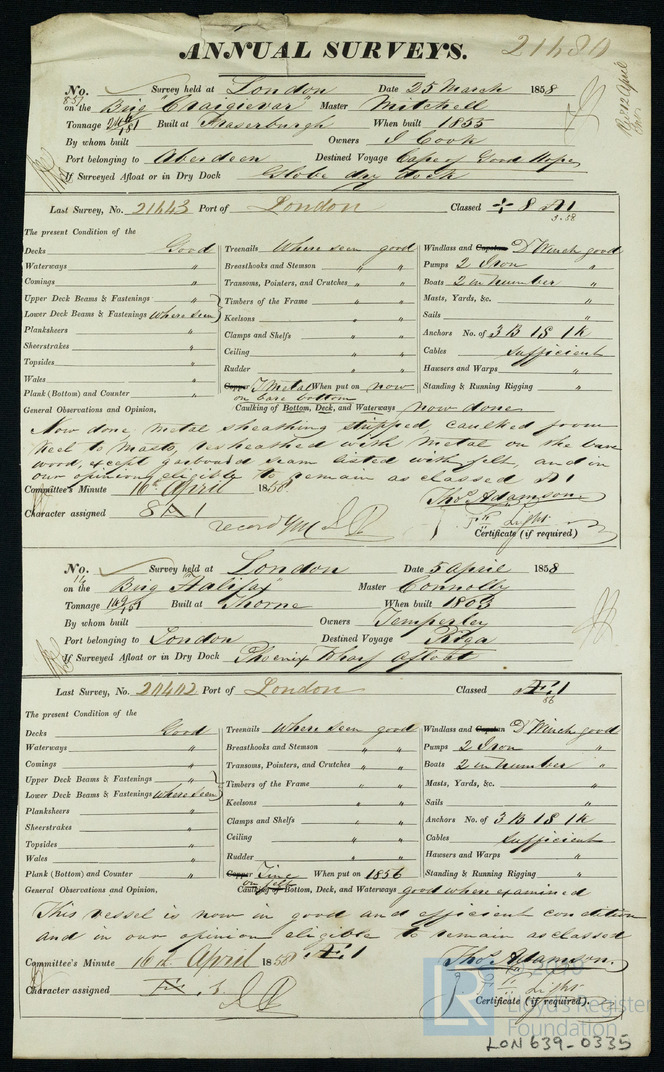 ANNUAL SURVEYS.
21480
No. 857 Survey held at London Date 25 March 1858
on the Brig "Craigievar" Master Mitchell
Tonnage Built at Fraserburgh When built 1855
By whom built Owners J Cook
Port belonging to Aberdeen Destined Voyage Cape of Good Hope
If Surveyed Afloat or in Dry Dock Globe dry dock
Last Survey, No. 21443 Port of London Classed 8 A1
3.58
The present Condition of the
Decks Good Treenails Where seen good Windlass and Capstan D° Winch good
Waterways " Breasthooks and Stemson " " Pumps 2 Iron "
Comings " Transoms, Pointers, and Crutches " " Boats 2 in number "
Upper Deck Beams & Fastenings " Timbers of the Frame " " Masts, Yards, &c. "
Lower Deck Beams & Fastenings where seen Keelsons " " Sails "
Planksheers " Clamps and Shelfs " " Anchors No. of 3 B 1 S 1 K
Sheerstrakes " Ceiling " " Cables sufficient
Topsides " Rudder " " Hawsers and Warps "
Wales " Copper Y Metal When put on now Standing & Running Rigging "
on bare bottom
Plank (Bottom) and Counter "
General Observations and Opinion, Caulking of Bottom, Deck, and Waterways now done
Now done metal sheathing stripped, caulked from
keel to masts, resheathed with metal on the bare
wood, except garboard seam listed with felt, and in
our opinion eligible to remain as classed A1
Committee's Minute 16th April 1858 Thos Adamson
Character assigned 8 A 1 record YM Light
Certificate (if required)
No. 14 Survey held at London Date 5 April 1858
on the Brig "Halifax" Master Connolly
Tonnage Built at Thorne When built 1803
By whom built Owners Temperley
Port belonging to London Destined Voyage Riga
If Surveyed Afloat or in Dry Dock Phoenix Wharf afloat
Last Survey, No. 20402 Port of London Classed Æ 1
56
The present Condition of the
Decks Good Treenails Where seen good Windlass and Capstan D° Winch good
Waterways " Breasthooks and Stemson " " Pumps 2 Iron "
Comings " Transoms, Pointers, and Crutches " " Boats 2 in number "
Upper Deck Beams & Fastenings " Timbers of the Frame " " Masts, Yards, &c. "
Lower Deck Beams & Fastenings where seen Keelsons " " Sails "
Planksheers " Clamps and Shelfs " " Anchors No. of 3 B 1 S 1 K
Sheerstrakes " Ceiling " " Cables sufficient
Topsides " Rudder " " Hawsers and Warps "
Wales " Copper Zinc When put on 1856 Standing & Running Rigging "
on felt
Plank (Bottom) and Counter "
General Observations and Opinion, Caulking of Bottom, Deck, and Waterways good where examined
This vessel is now in good and efficient condition
and in our opinion eligible to remain as classed
Committee's Minute 16th April 1858 Æ 1 Thos Adamson.
Character assigned Æ 1 Light
Certificate (if required).
LR
Lloyd's Register
Foundation
LON639-0335